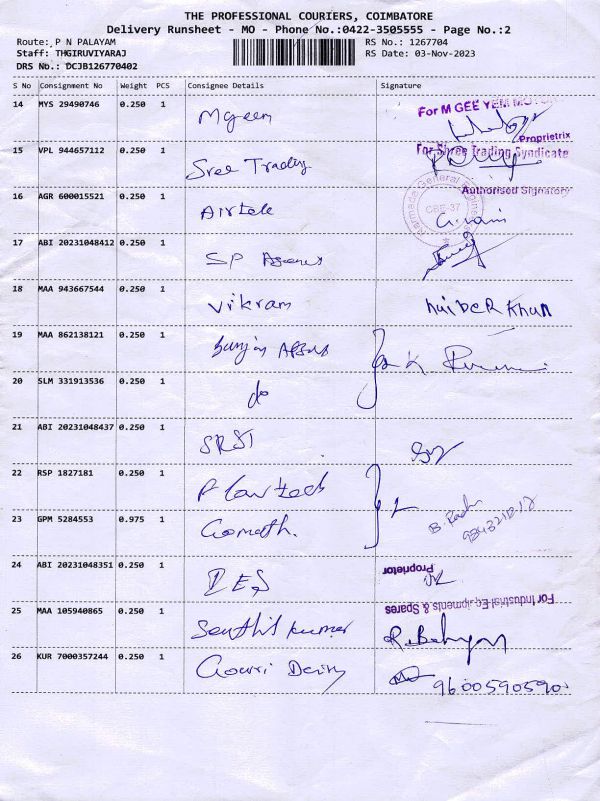 THE PROFESSIONAL COURIERS, COIMBATORE
Delivery Runsheet - MO - Phone No.:0422-3505555 - Page No.:2
Route: P N PALAYAM RS No.: 1267704
Staff: THGIRUVIYARAJ RS Date: 03-Nov-2023
DRS No.: DCJB126770402
S No Consignment No Weight PCS Consignee Details Signature
14 MYS 29490746 0.250 1 Mgeen For M GEE YEM MOTOR
Proprietrix
15 VPL 944657112 0.250 1 Sree Trading For Shree Trading Syndicate
16 AGR 600015521 0.250 1 Airtele Authorised Signatory
Narmada General CBE-37
17 ABI 20231048412 0.250 1 SP
18 MAA 943667544 0.250 1 Vikram haiber Khan
19 MAA 862138121 0.250 1
20 SLM 331913536 0.250 1 do
21 ABI 20231048437 0.250 1 SRST
22 RSP 1827181 0.250 1
23 GPM 5284553 0.975 1 Gomath.
24 ABI 20231048351 0.250 1 Proprietor
For Industrial Equipments & Spares
25 MAA 105940865 0.250 1 Senthil kumar
26 KUR 7000357244 0.250 1 Gowri Dairy 9600590590